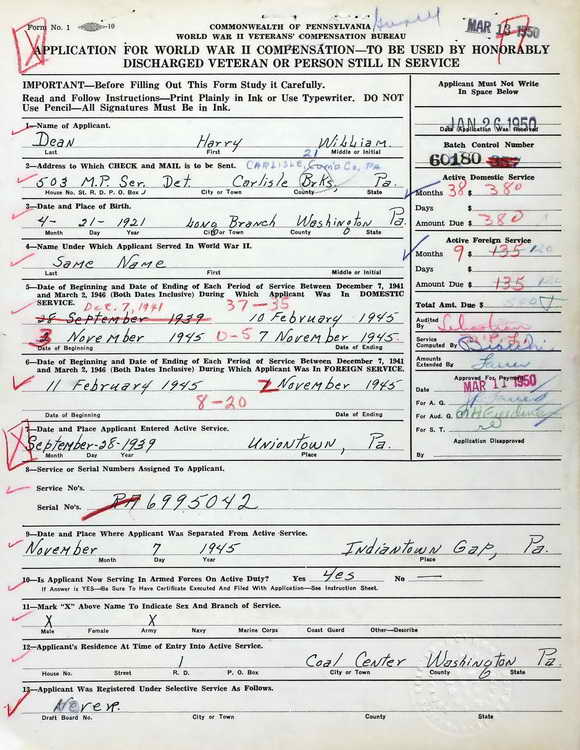 Form No. 1
-10
COMMONWEALTH OF PENNSYLVANIA
WORLD WAR II VETERANS' COMPENSATION BUREAU
MAR 13 1950
APPLICATION FOR WORLD WAR II COMPENSATION—TO BE USED BY HONORABLY
DISCHARGED VETERAN OR PERSON STILL IN SERVICE
IMPORTANT—Before Filling Out This Form Study it Carefully.
Read and Follow Instructions—Print Plainly in Ink or Use Typewriter. DO NOT
Use Pencil—All Signatures Must Be in Ink.
1—Name of Applicant.
Dean Harry William
Last First Middle or Initial
2—Address to Which CHECK and MAIL is to be Sent.
21
CARLISLE, Pa
503 M.P. Ser. Det Carlisle Brks, Pa.
House No. St. R.D. P.O. Box J City or Town County State
3—Date and Place of Birth.
4- 21- 1921 Long Branch Washington Pa.
Month Day Year City or Town County State
4—Name Under Which Applicant Served In World War II.
Same Name
Last First Middle or Initial
5—Date of Beginning and Date of Ending of Each Period of Service Between December 7, 1941
and March 2, 1946 (Both Dates Inclusive) During Which Applicant Was In DOMESTIC
SERVICE.
Dec. 7, 1941 37-35
28 September 1939 10 February 1945
3 November 1945 0-5 7 November 1945.
Date of Beginning Date of Ending
6—Date of Beginning and Date of Ending of Each Period of Service Between December 7, 1941
and March 2, 1946 (Both Dates Inclusive) During Which Applicant Was In FOREIGN SERVICE.
11 February 1945 2 November 1945
8-20
Date of Beginning Date of Ending
7—Date and Place Applicant Entered Active Service.
September-28-1939 Uniontown, Pa.
Month Day Year Place
8—Service or Serial Numbers Assigned To Applicant.
Service No's.
Serial No's. RA 6995042
9—Date and Place Where Applicant Was Separated From Active Service.
November 7 1945 Indiantown Gap, Pa.
Month Day Year Place
10—Is Applicant Now Serving In Armed Forces On Active Duty? Yes Yes No —
If Answer is YES—Be Sure To Have Certificate Executed And Filed With Application—See Instruction Sheet.
11—Mark "X" Above Name To Indicate Sex And Branch of Service.
X X
Male Female Army Navy Marine Corps Coast Guard Other—Describe
12—Applicant's Residence At Time of Entry Into Active Service.
1 Coal Center Washington Pa.
House No. Street R. D. P. O. Box City or Town County State
13—Applicant Was Registered Under Selective Service As Follows.
Never.
Draft Board No. City or Town County State
Applicant Must Not Write
In Space Below
JAN 26 1950
Date Application Was Received
Batch Control Number
60180
Active Domestic Service
Months 38 $ 380
Days $
Amount Due $ 380
Active Foreign Service
Months 9 $ 135
Days $
Amount Due $ 135
Total Amt. Due $
Audited
By
Service
Computed By
Amounts
Extended By
Approved For Payment
Date MAR 11 1950
For A. G.
For Aud. G.
For S. T.
Application Disapproved
By